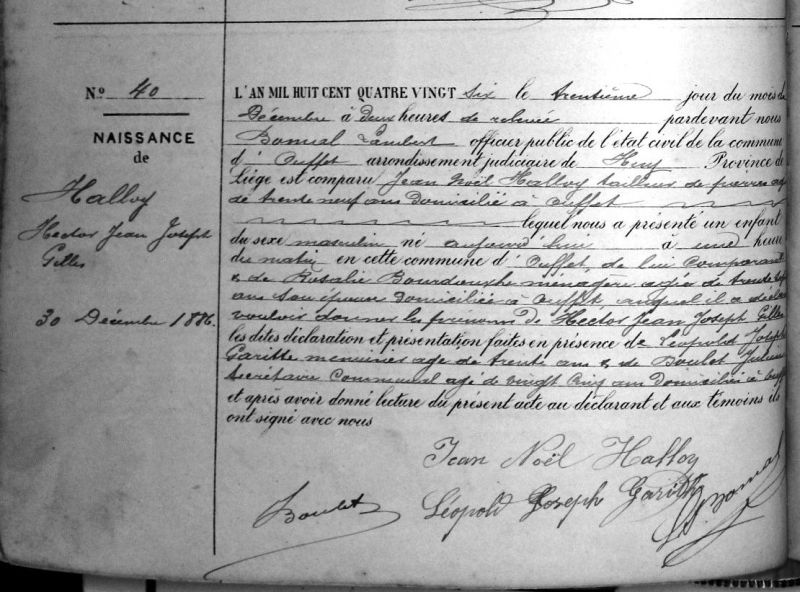 N.o 40
NAISSANCE
de
Halloy
Hector Jean Joseph
Gilles
30 Décembre 1886.
L'AN MIL HUIT CENT QUATRE VINGT six le trentième jour du mois de
Décembre à deux heures de relevée pardevant nous
Bomal Lambert officier public de l'état civil de la commune
d' Ouffet arrondissement judiciaire de Huy Province de
Liége est comparu Jean Noël Halloy tailleur de pierres agé
de trente neuf ans domicilié à Ouffet
lequel nous a présenté un enfant
du sexe masculin né aujourd'hui à une heure
du matin en cette commune d' Ouffet, de lui comparant
& de Rosalie Bourdouxhe ménagère agée de trente
ans son épouse domiciliée à Ouffet auquel il a déclaré
vouloir donner le prénom de Hector Jean Joseph Gilles
les dites déclaration et présentation faites en présence de Léopold Joseph
Garitte menuisier agé de trente ans & de Boulet Julien
Secrétaire Communal agé de vingt cinq ans domiciliés à Ouffet
et après avoir donné lecture du présent acte au déclarant et aux témoins ils
ont signé avec nous
Jean Noël Halloy
Boulet
Léopold Joseph Garitte
Bomal